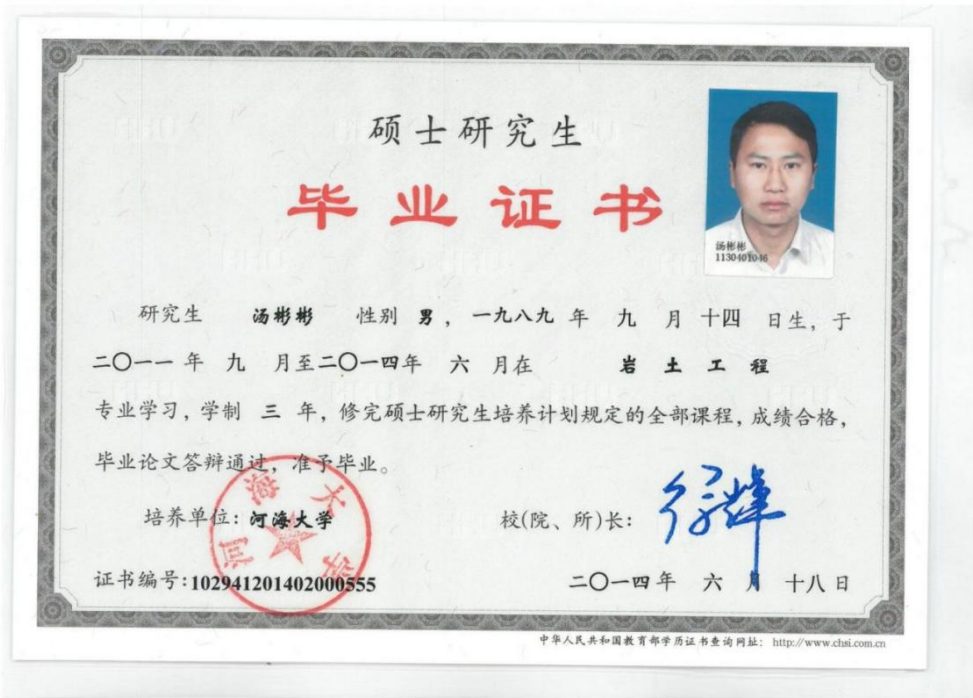 硕士研究生
毕业证书
汤彬彬
1130401046
研究生 汤彬彬 性别 男，一九八九 年 九 月 十四 日生，于
二〇一一 年 九 月至二〇一四年 六 月在 岩土工程
专业学习，学制 三 年，修完硕士研究生培养计划规定的全部课程，成绩合格，
毕业论文答辩通过，准予毕业。
河海大学
培养单位：河海大学 校(院、所)长：
证书编号：102941201402000555 二〇一四年 六 月 十八 日
中华人民共和国教育部学历证书查询网址： http://www.chsi.com.cn